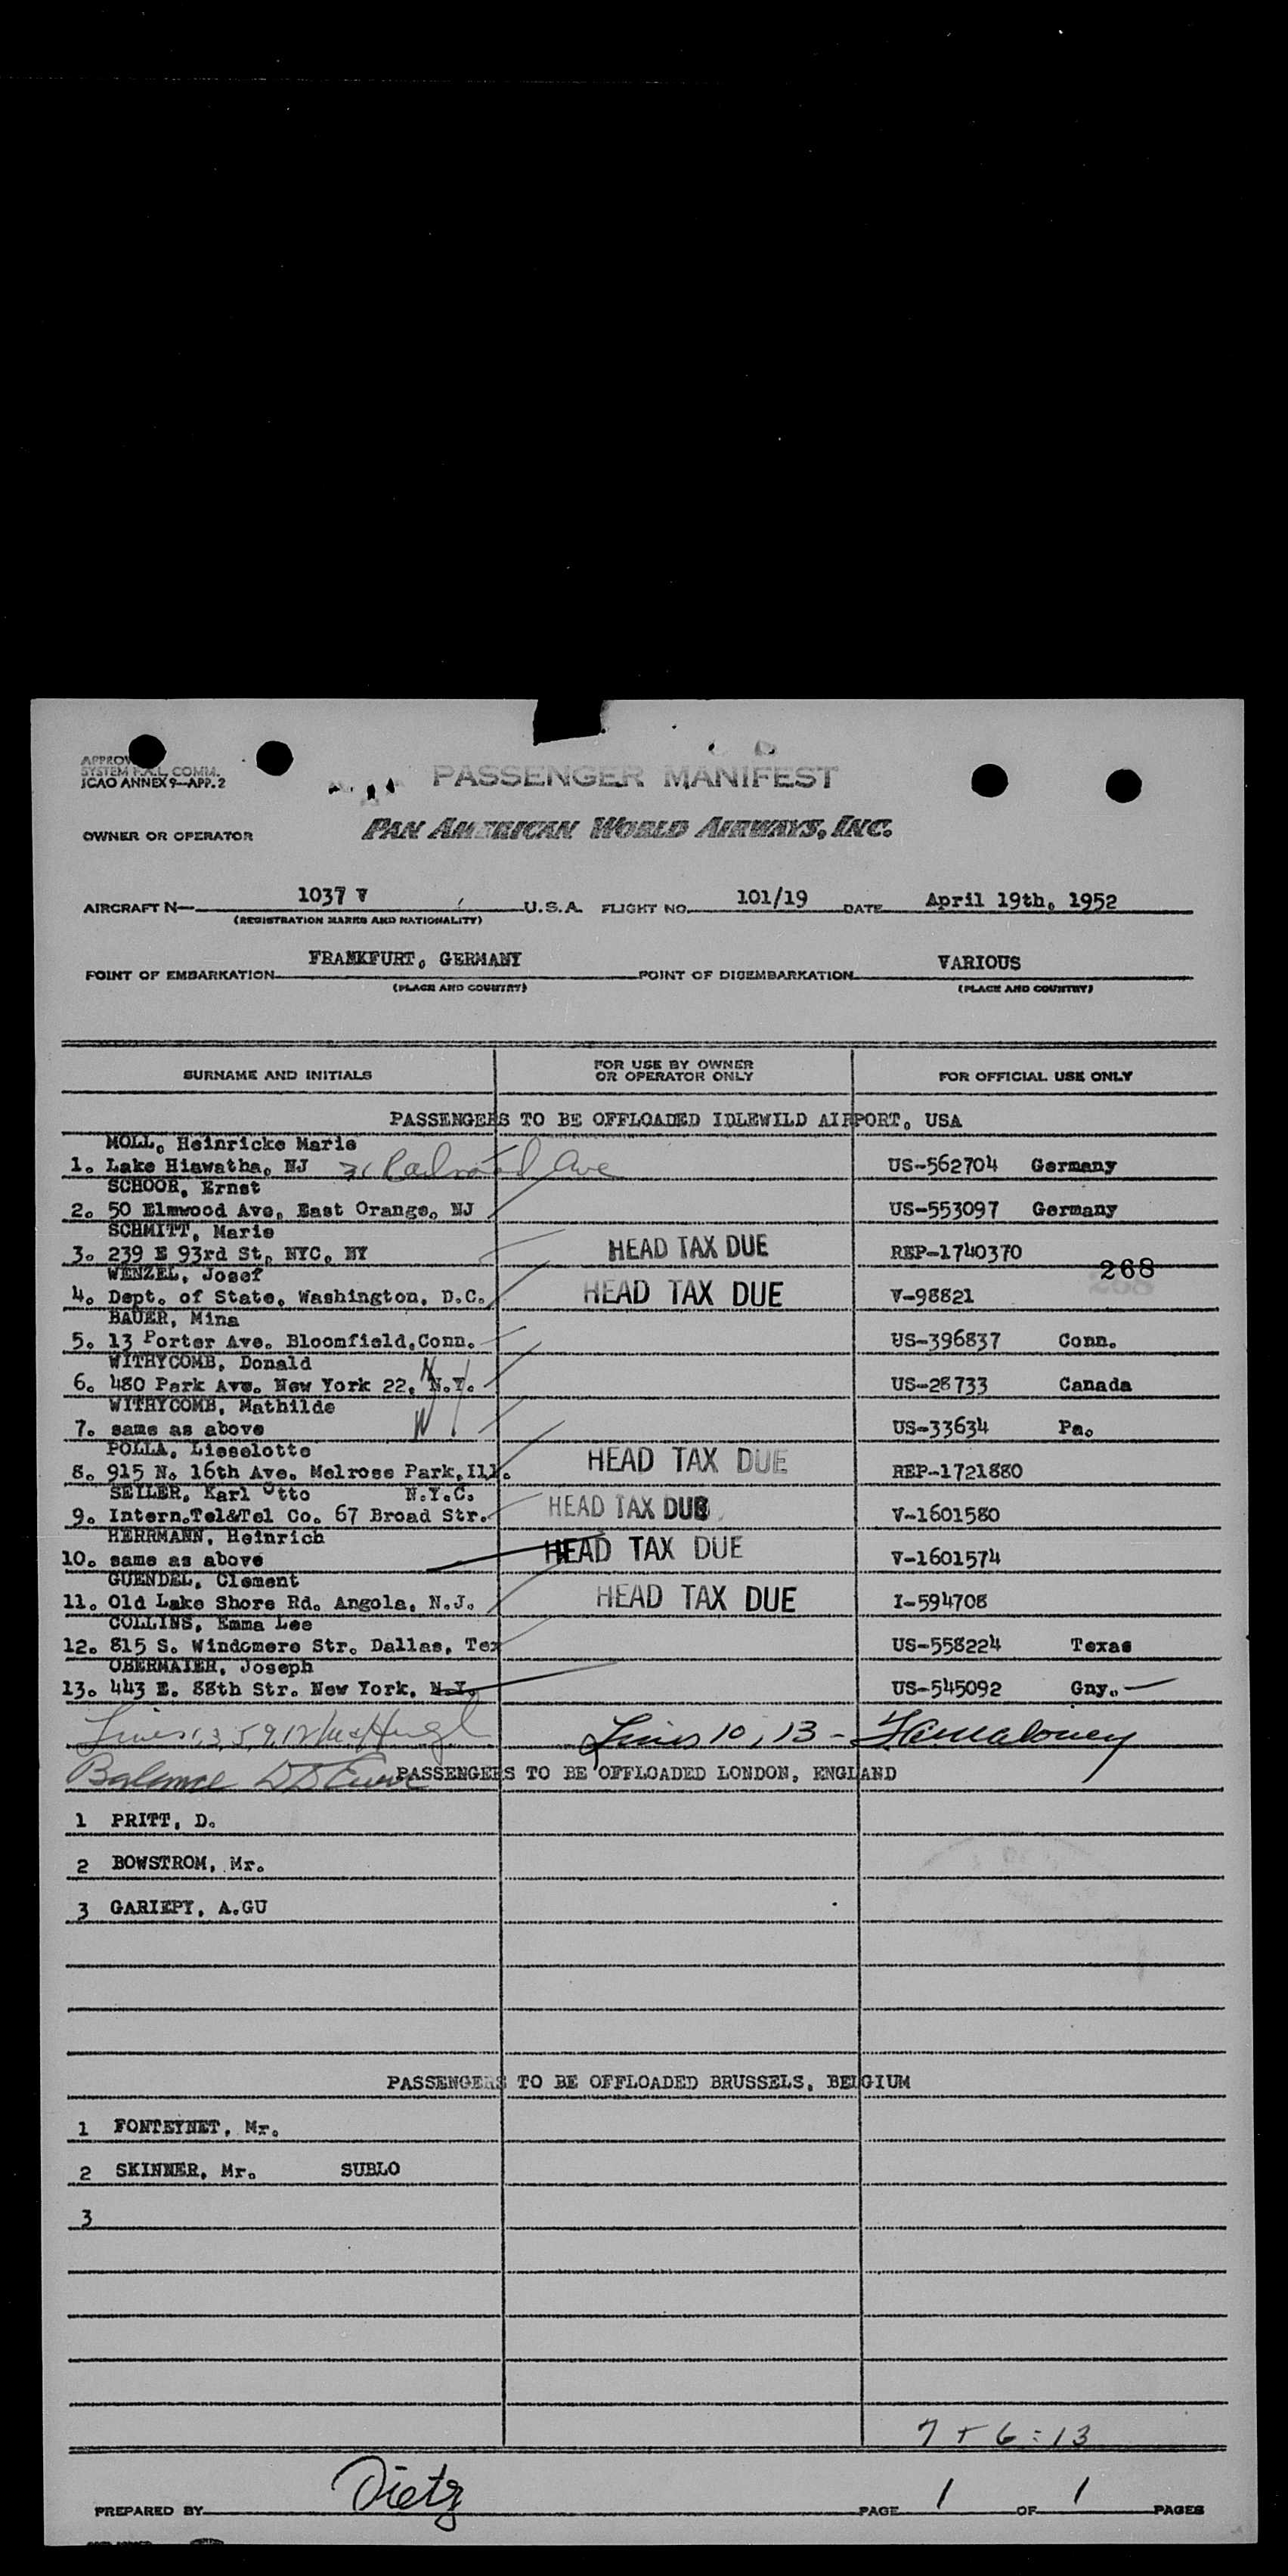 SYSTEM F.A.L. COMM.
ICAO ANNEX 9-APP. 2
PASSENGER MANIFEST
OWNER OR OPERATOR PAN AMERICAN WORLD AIRWAYS, INC.
AIRCRAFT N— 1037 V U.S.A. FLIGHT NO. 101/19 DATE April 19th, 1952
(REGISTRATION MARKS AND NATIONALITY)
POINT OF EMBARKATION FRANKFURT, GERMANY POINT OF DISEMBARKATION VARIOUS
(PLACE AND COUNTRY) (PLACE AND COUNTRY)
SURNAME AND INITIALS FOR USE BY OWNER OR OPERATOR ONLY FOR OFFICIAL USE ONLY
PASSENGERS TO BE OFFLOADED IDLEWILD AIRPORT, USA
MOLL, Heinricke Marie
1. Lake Hiawatha, NJ 31 Railroad Ave US-562704 Germany
SCHOOR, Ernst
2. 50 Elmwood Ave, East Orange, NJ US-553097 Germany
SCHMITT, Marie
3. 239 E 93rd St, NYC, NY HEAD TAX DUE REP-1740370
WENZEL, Josef 268
4. Dept. of State, Washington, D.C. HEAD TAX DUE V-98821
BAUER, Mina
5. 13 Porter Ave. Bloomfield, Conn. US-396837 Conn.
WITHYCOMB, Donald
6. 480 Park Ave. New York 22, N.Y. US-28733 Canada
WITHYCOMB, Mathilde
7. same as above US-33634 Pa.
POLLA, Lieselotte
8. 915 N. 16th Ave. Melrose Park, Ill. HEAD TAX DUE REP-1721880
SEILER, Karl Otto N.Y.C.
9. Intern.Tel&Tel Co. 67 Broad Str. HEAD TAX DUE V-1601580
HERRMANN, Heinrich
10. same as above HEAD TAX DUE V-1601574
GUENDEL, Clement
11. Old Lake Shore Rd. Angola, N.J. HEAD TAX DUE I-594708
COLLINS, Emma Lee
12. 815 S. Windomere Str. Dallas, Tex US-558224 Texas
OBERMAIER, Joseph
13. 443 E. 88th Str. New York, N.Y. US-545092 Gny.
Lines 1, 3, 5, 9, 12 Lines 10, 13 -
Balance
PASSENGERS TO BE OFFLOADED LONDON, ENGLAND
1 PRITT, D.
2 BOWSTROM, Mr.
3 GARIEPY, A.GU
PASSENGERS TO BE OFFLOADED BRUSSELS, BELGIUM
1 FONTEYNET, Mr.
2 SKINNER, Mr. SUBLO
3
7 + 6 = 13
PREPARED BY Dietz PAGE 1 OF 1 PAGES